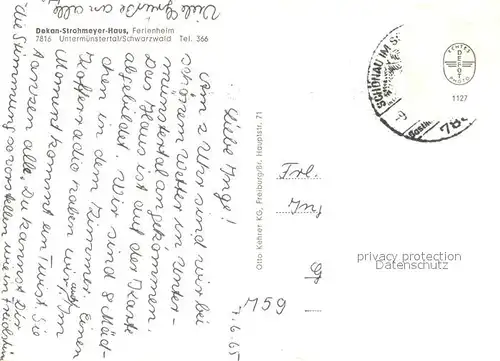 Dekan-Strohmeyer-Haus, Ferienheim
7816 Untermünstertal/Schwarzwald Tel. 366
7.6.65
Liebe Inge!
Um 2 Uhr sind wir bei
schönem Wetter in Unter-
münstertal angekommen.
Das Haus ist auf der Karte
abgebildet. Wir sind 8 Mäd-
chen in dem Zimmer. Einen
Kofferradio haben wir auch. Im
Moment kommt ein Twist. Sie
tanzen alle. Du kannst Dir
die Stimmung so vorstellen wie in
Viele Grüße an alle
Otto Kehrer KG, Freiburg/Br., Hauptstr. 71
Frl.
M59
SCHÖNAU IM S
ECHTES
DEPOT
PHOTO
1127
privacy protection
Datenschutz